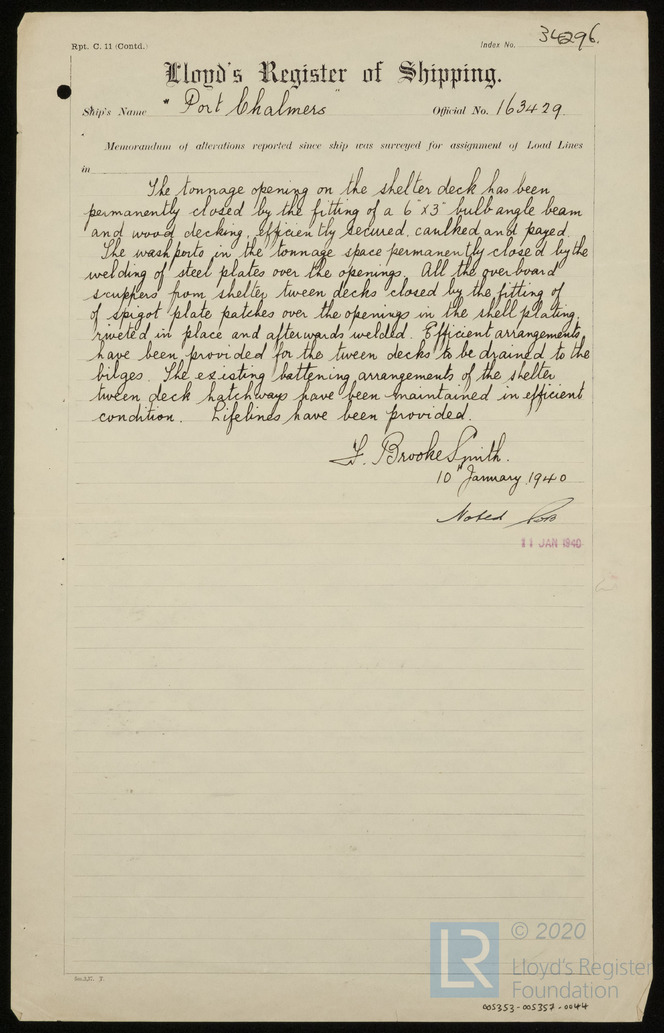 Rpt. C. 11 (Contd.)
Index No. 34296.
Lloyd's Register of Shipping.
Ship's Name "Port Chalmers" Official No. 163429.
Memorandum of alterations reported since ship was surveyed for assignment of Load Lines
in
The tonnage opening on the shelter deck has been
permanently closed by the fitting of a 6" x 3" bulb angle beam
and wood decking, efficiently secured, caulked and payed.
The washports in the tonnage space permanently closed by the
welding of steel plates over the openings. All the overboard
scuppers from shelter tween decks closed by the fitting of
of spigot plate patches over the openings in the shell plating,
riveted in place and afterwards welded. Efficient arrangements
have been provided for the tween decks to be drained to the
bilges. The existing battening arrangements of the shelter
tween deck hatchways have been maintained in efficient
condition. Lifelines have been provided.
F. Brooke Smith.
10th January, 1940
Noted
11 JAN 1940
LR © 2020
Lloyd's Register
Foundation
005353-005357-0044